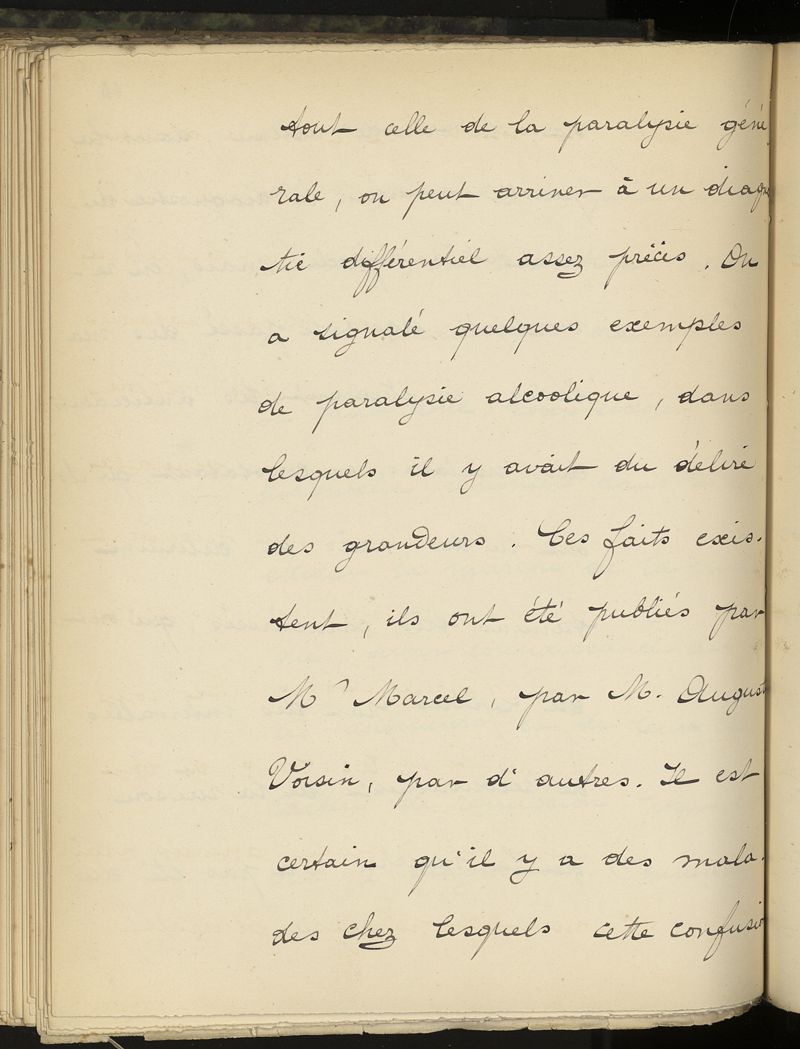 tout celle de la paralysie géné
rale, on peut arriver à un diagn
tic différentiel assez précis. On
a signalé quelques exemples
de paralysie alcoolique, dans
lesquels il y avait du délire
des grandeurs. Ces faits exis-
tent, ils ont été publiés par
Mr Marcel, par M. August
Voisin, par d'autres. Il est
certain qu'il y a des mala-
des chez lesquels cette confusio